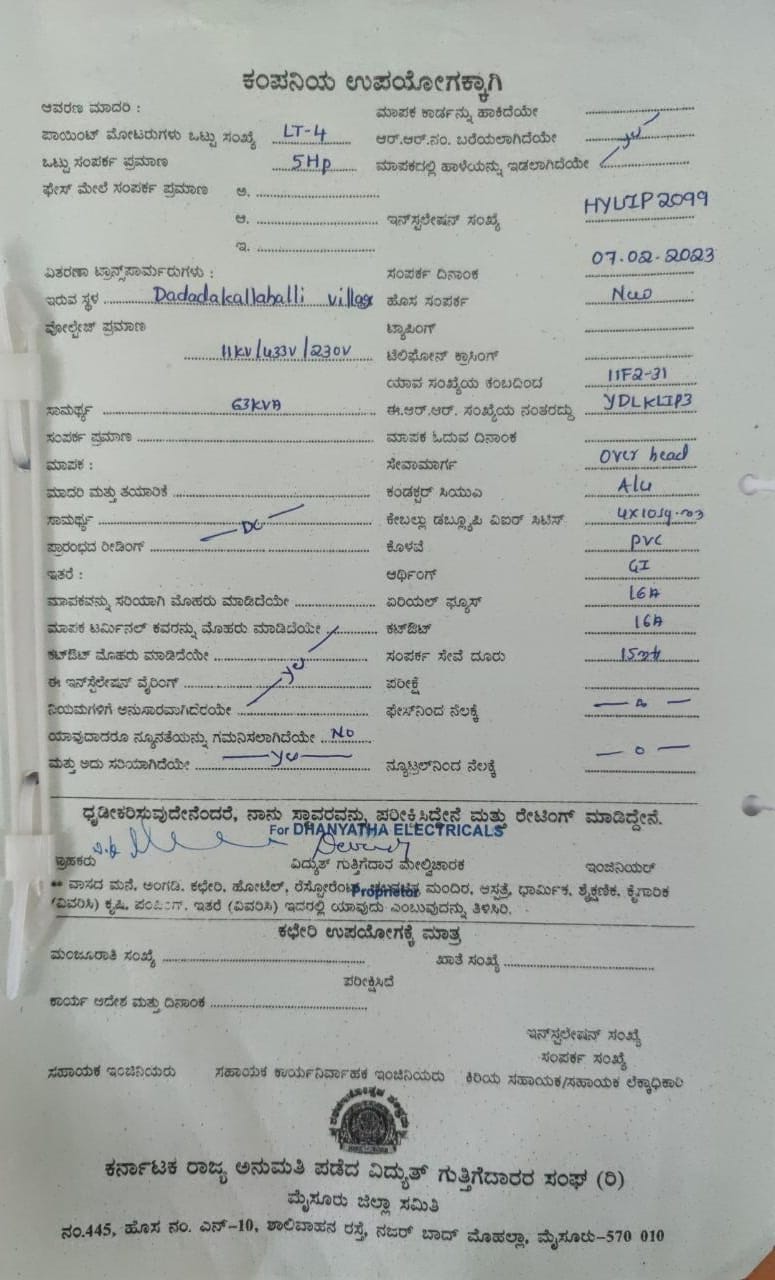 ಕಂಪನಿಯ ಉಪಯೋಗಕ್ಕಾಗಿ
ಆವರಣ ಮಾದರಿ : ಮಾಪಕ ಕಾರ್ಡನ್ನು ಹಾಕಿದೆಯೇ
ಪಾಯಿಂಟ್ ಮೋಟರುಗಳು ಒಟ್ಟು ಸಂಖ್ಯೆ LT-4 ಆರ್.ಆರ್.ನಂ. ಬರೆಯಲಾಗಿದೆಯೇ
ಒಟ್ಟು ಸಂಪರ್ಕ ಪ್ರಮಾಣ 5Hp ಮಾಪಕದಲ್ಲಿ ಹಾಳೆಯನ್ನು ಇಡಲಾಗಿದೆಯೇ
ಫೇಸ್ ಮೇಲೆ ಸಂಪರ್ಕ ಪ್ರಮಾಣ ಅ.
ಆ. ಇನ್‌ಸ್ಟಲೇಷನ್ ಸಂಖ್ಯೆ HYLIP2099
ಇ.
ವಿತರಣಾ ಟ್ರಾನ್ಸ್‌ಫಾರ್ಮರುಗಳು : ಸಂಪರ್ಕ ದಿನಾಂಕ 07.02.2023
ಇರುವ ಸ್ಥಳ Dadadakallahalli village ಹೊಸ ಸಂಪರ್ಕ New
ವೋಲ್ಟೇಜ್ ಪ್ರಮಾಣ ಟ್ಯಾಪಿಂಗ್
11KV/433V/230V ಟೆಲಿಫೋನ್ ಕ್ರಾಸಿಂಗ್
ಯಾವ ಸಂಖ್ಯೆಯ ಕಂಬದಿಂದ 11F2-31
ಸಾಮರ್ಥ್ಯ 63KVA ಈ.ಆರ್.ಆರ್. ಸಂಖ್ಯೆಯ ನಂತರದ್ದು YDLKLIP3
ಸಂಪರ್ಕ ಪ್ರಮಾಣ ಮಾಪಕ ಓದುವ ದಿನಾಂಕ
ಮಾಪಕ : ಸೇವಾಮಾರ್ಗ Over head
ಮಾದರಿ ಮತ್ತು ತಯಾರಿಕೆ ಕಂಡಕ್ಟರ್ ಸಿಯುಎ Alu
ಸಾಮರ್ಥ್ಯ DC ಕೇಬಲ್ಲು ಡಬ್ಲ್ಯೂಪಿ ವಿಐರ್ ಸಿಟಿಸ್ 4X10sq.mm
ಪ್ರಾರಂಭದ ರೀಡಿಂಗ್ ಕೊಳವೆ PVC
ಇತರೆ : ಆರ್ಥಿಂಗ್ GI
ಮಾಪಕವನ್ನು ಸರಿಯಾಗಿ ಮೊಹರು ಮಾಡಿದೆಯೇ ಏರಿಯಲ್ ಫ್ಯೂಸ್ 16A
ಮಾಪಕ ಟರ್ಮಿನಲ್ ಕವರನ್ನು ಮೊಹರು ಮಾಡಿದೆಯೇ ಕಟ್‌ಔಟ್ 16A
ಕಟ್‌ಔಟ್ ಮೊಹರು ಮಾಡಿದೆಯೇ ಸಂಪರ್ಕ ಸೇವೆ ದೂರು 15mt
ಈ ಇನ್‌ಸ್ಟೆಲೇಷನ್ ವೈರಿಂಗ್ ಪರೀಕ್ಷೆ
ನಿಯಮಗಳಿಗೆ ಅನುಸಾರವಾಗಿದೆರಯೇ ಫೇಸ್‌ನಿಂದ ನೆಲಕ್ಕೆ
ಯಾವುದಾದರೂ ನ್ಯೂನತೆಯನ್ನು ಗಮನಿಸಲಾಗಿದೆಯೇ No
ಮತ್ತು ಅದು ಸರಿಯಾಗಿದೆಯೇ ನ್ಯೂಟ್ರಲ್‌ನಿಂದ ನೆಲಕ್ಕೆ
ಧೃಡೀಕರಿಸುವುದೇನೆಂದರೆ, ನಾನು ಸ್ಥಾವರವನ್ನು ಪರೀಕ್ಷಿಸಿದ್ದೇನೆ ಮತ್ತು ರೇಟಿಂಗ್ ಮಾಡಿದ್ದೇನೆ.
For DHANYATHA ELECTRICALS
ಗ್ರಾಹಕರು ವಿದ್ಯುತ್ ಗುತ್ತಿಗೆದಾರ ಮೇಲ್ವಿಚಾರಕ ಇಂಜಿನಿಯರ್
** ವಾಸದ ಮನೆ, ಅಂಗಡಿ. ಕಛೇರಿ, ಹೋಟೆಲ್, ರೆಸ್ಟೋರೆಂಟ್, ಮಂದಿರ, ಆಸ್ಪತ್ರೆ, ಧಾರ್ಮಿಕ, ಶೈಕ್ಷಣಿಕ, ಕೈಗಾರಿಕ
Proprietor
(ವಿವರಿಸಿ) ಕೃಷಿ, ಪಂಪಿಂಗ್, ಇತರೆ (ವಿವರಿಸಿ) ಇದರಲ್ಲಿ ಯಾವುದು ಎಂಬುವುದನ್ನು ತಿಳಿಸಿರಿ.
ಕಛೇರಿ ಉಪಯೋಗಕ್ಕೆ ಮಾತ್ರ
ಮಂಜೂರಾತಿ ಸಂಖ್ಯೆ ಖಾತೆ ಸಂಖ್ಯೆ
ಪರೀಕ್ಷಿಸಿದೆ
ಕಾರ್ಯ ಆದೇಶ ಮತ್ತು ದಿನಾಂಕ
ಇನ್‌ಸ್ಟಲೇಷನ್ ಸಂಖ್ಯೆ
ಸಂಪರ್ಕ ಸಂಖ್ಯೆ
ಸಹಾಯಕ ಇಂಜಿನಿಯರು ಸಹಾಯಕ ಕಾರ್ಯನಿರ್ವಾಹಕ ಇಂಜಿನಿಯರು ಕಿರಿಯ ಸಹಾಯಕ/ಸಹಾಯಕ ಲೆಕ್ಕಾಧಿಕಾರಿ
ಕರ್ನಾಟಕ ರಾಜ್ಯ ಅನುಮತಿ ಪಡೆದ ವಿದ್ಯುತ್ ಗುತ್ತಿಗೆದಾರರ ಸಂಘ (ರಿ)
ಮೈಸೂರು ಜಿಲ್ಲಾ ಸಮಿತಿ
ನಂ.445, ಹೊಸ ನಂ. ಎನ್-10, ಶಾಲಿಬಾಹನ ರಸ್ತೆ, ನಜರ್ ಬಾದ್ ಮೊಹಲ್ಲಾ, ಮೈಸೂರು-570 010